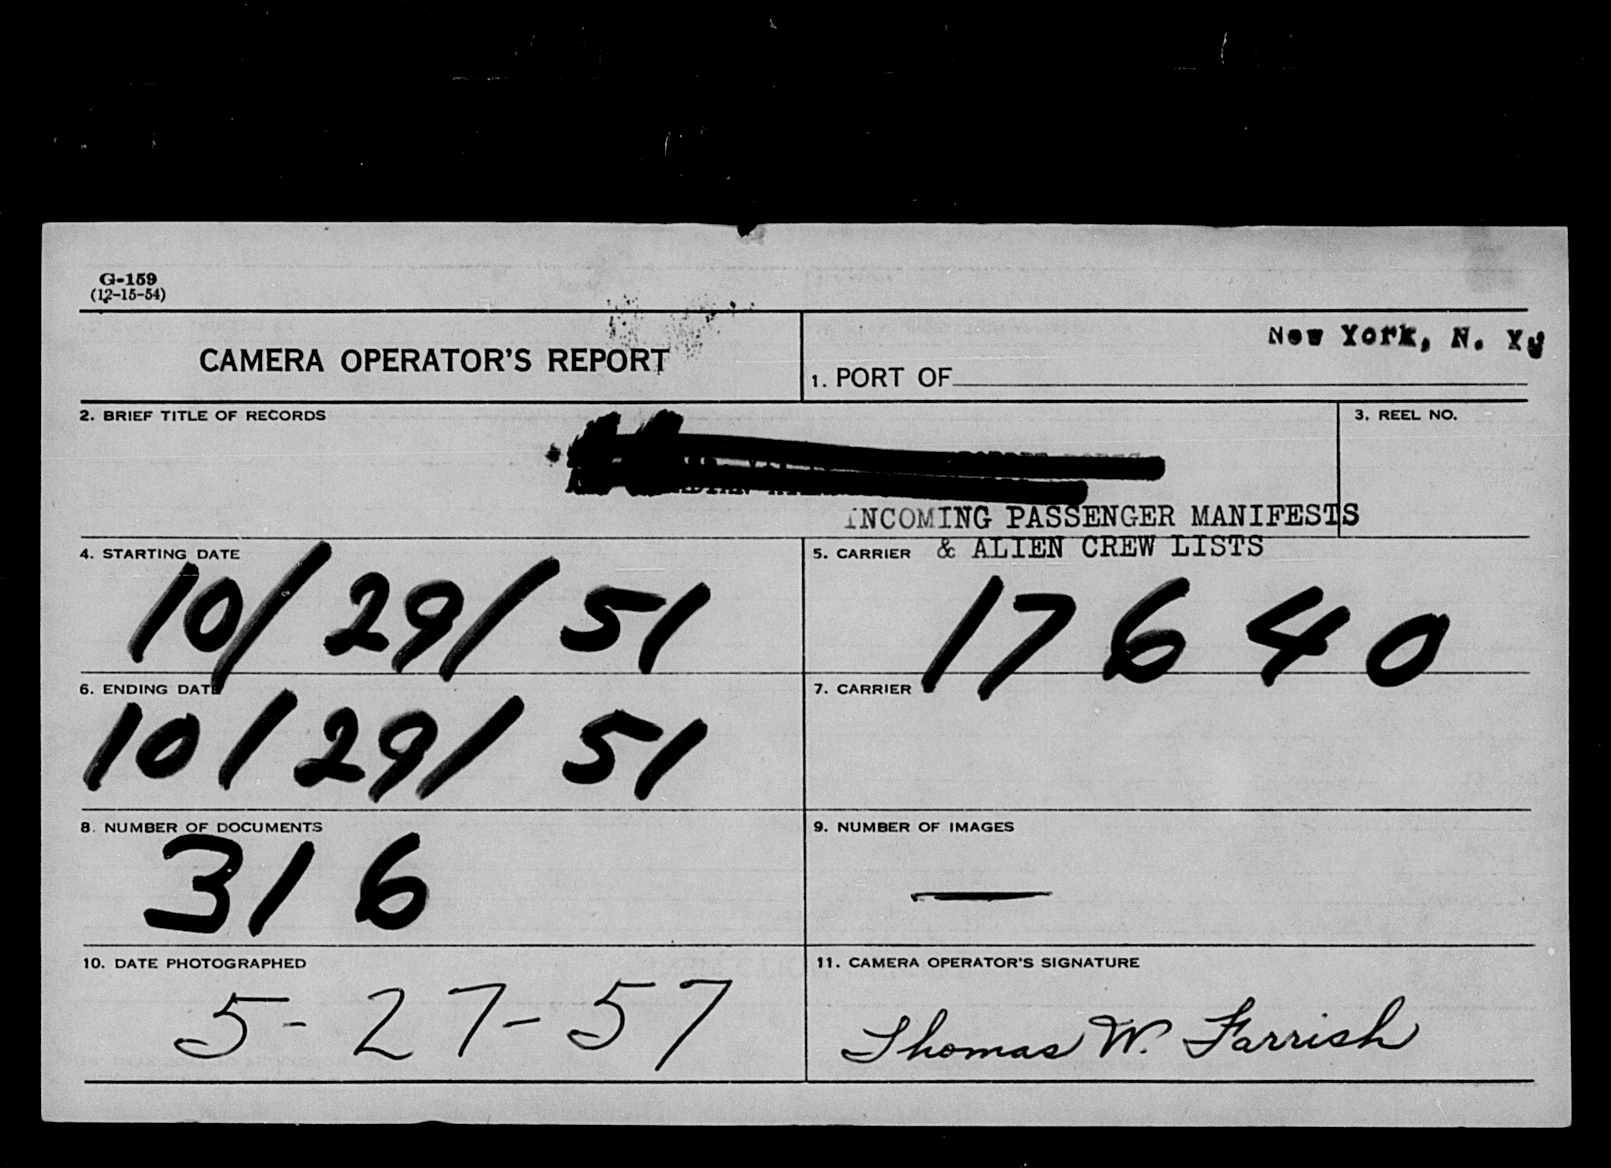 G-159
(12-15-54)
CAMERA OPERATOR'S REPORT
1. PORT OF New York, N. Y.
2. BRIEF TITLE OF RECORDS
3. REEL NO.
INCOMING PASSENGER MANIFESTS
& ALIEN CREW LISTS
4. STARTING DATE
10/29/51
5. CARRIER
17640
6. ENDING DATE
10/29/51
7. CARRIER
8. NUMBER OF DOCUMENTS
316
9. NUMBER OF IMAGES
—
10. DATE PHOTOGRAPHED
5-27-57
11. CAMERA OPERATOR'S SIGNATURE
Thomas W. Farrish